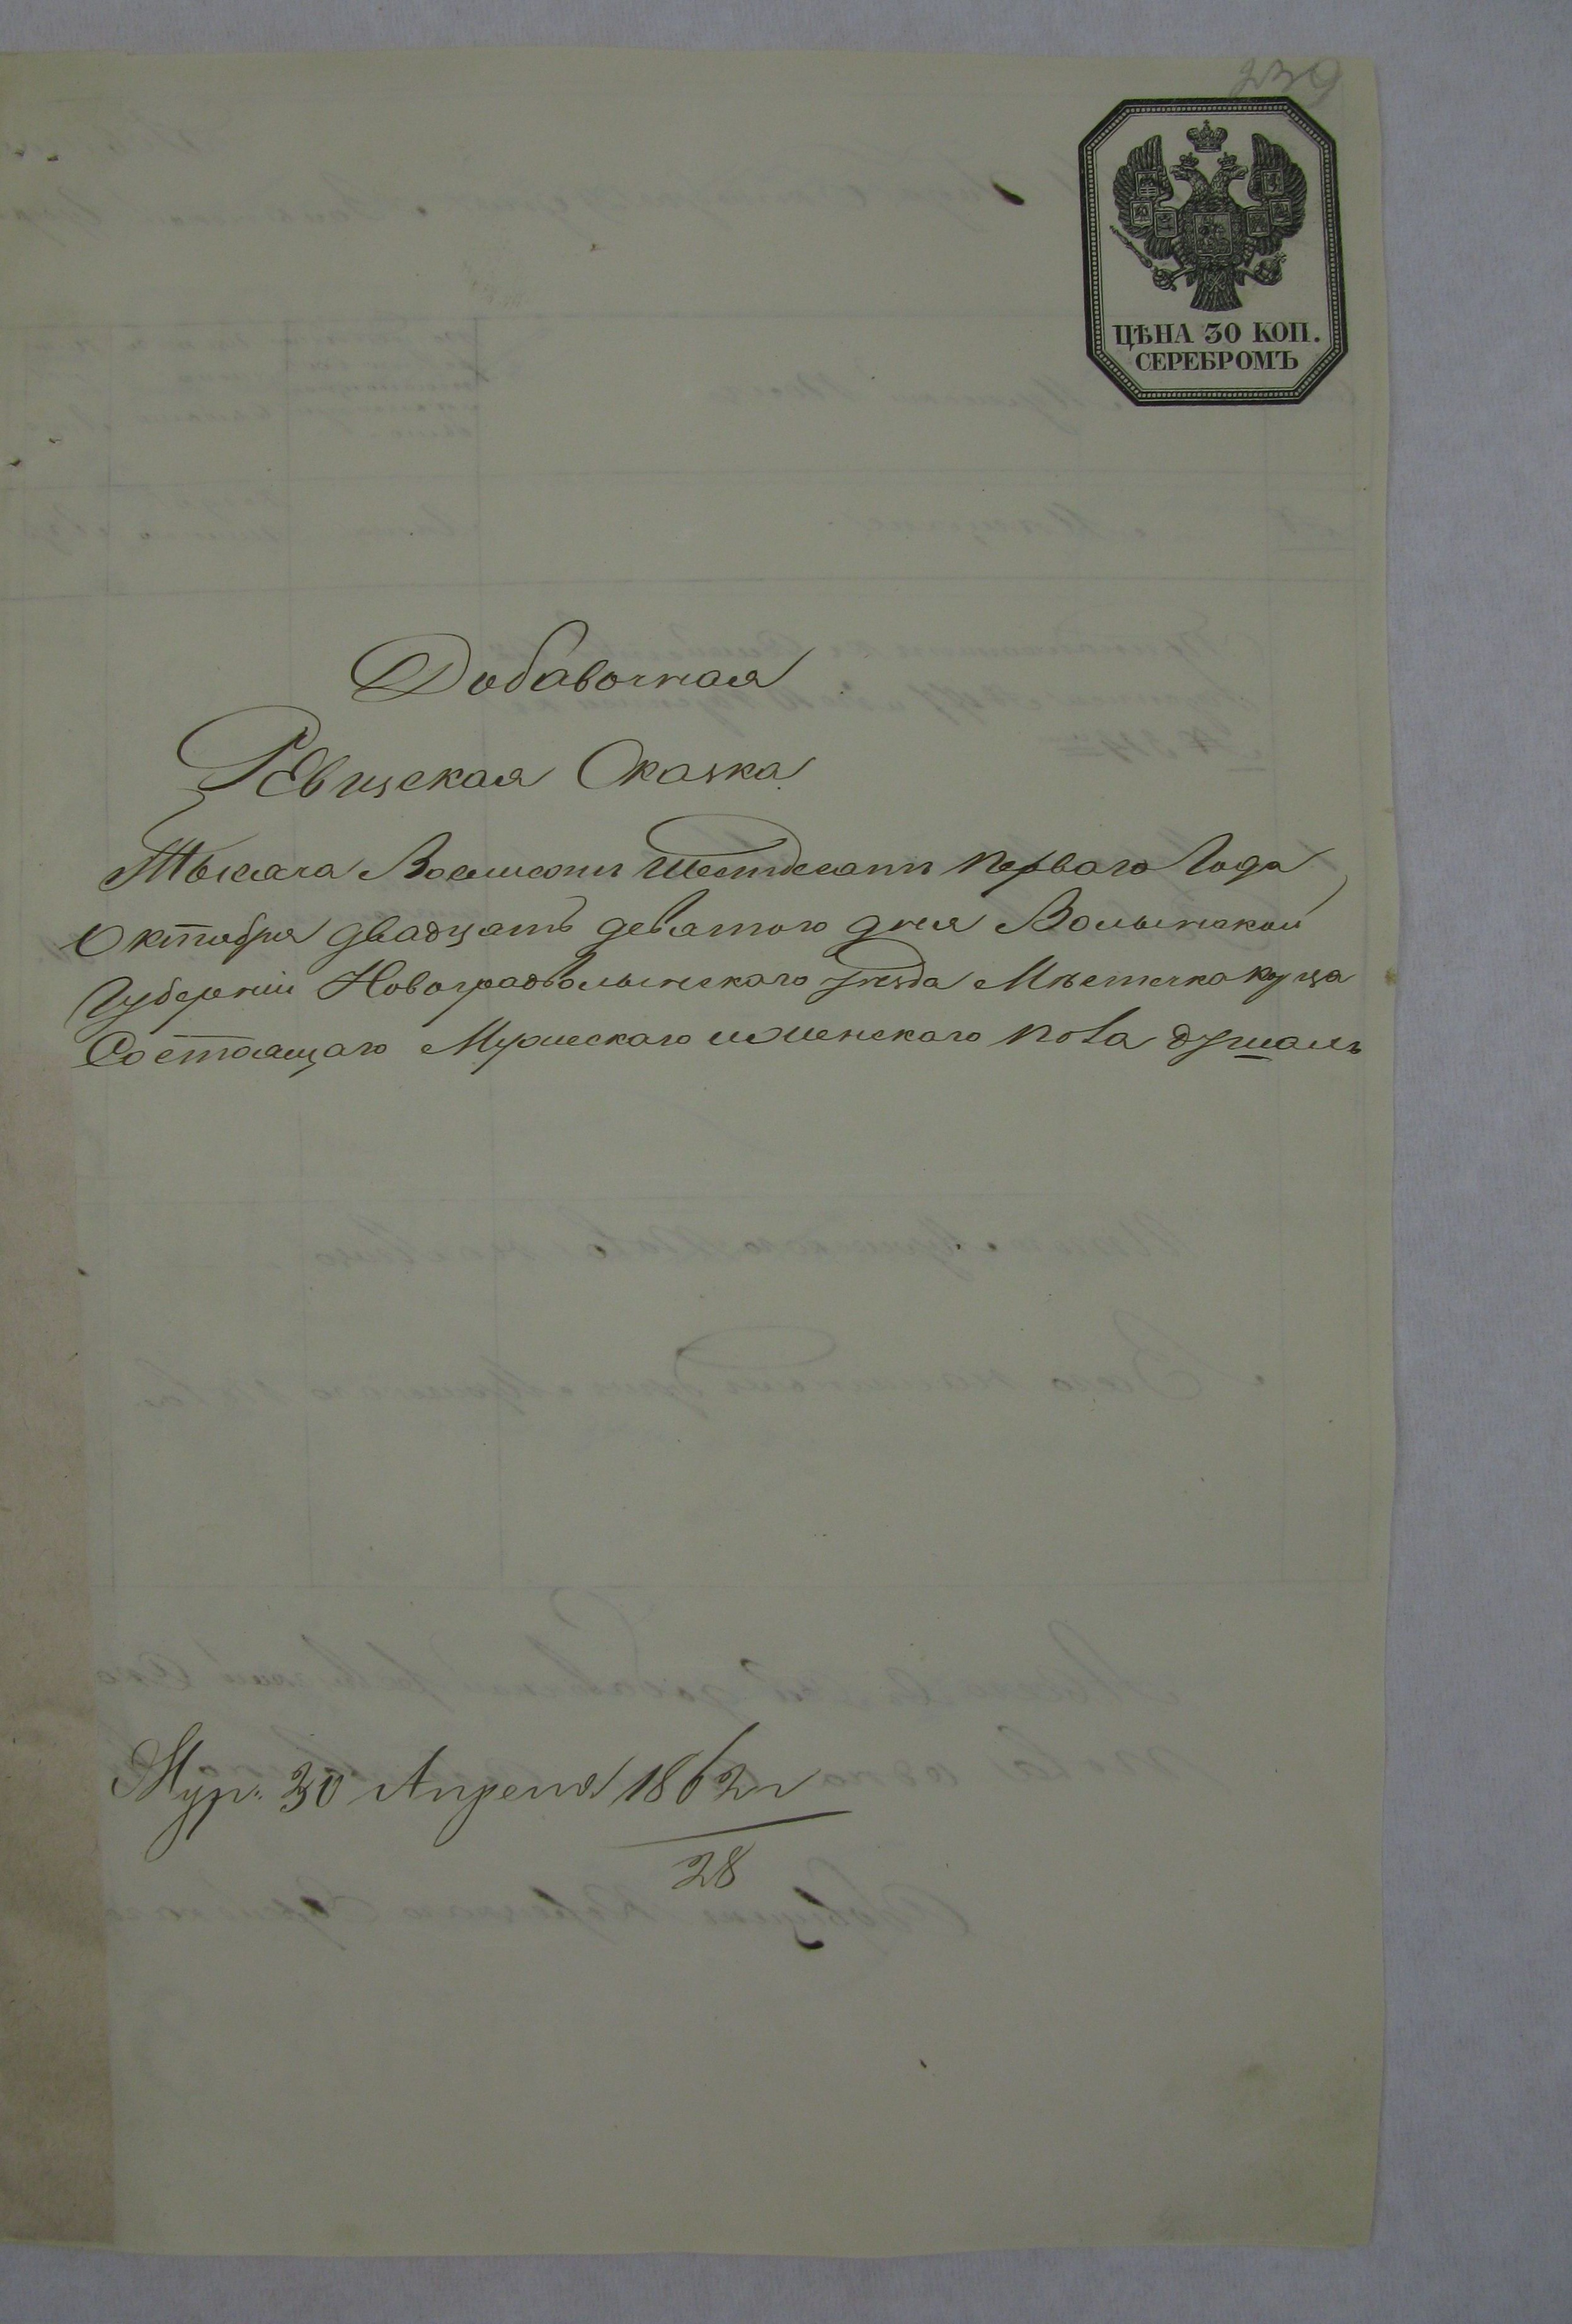 239
ЦѢНА 30 КОП.
СЕРЕБРОМЪ
Добавочная
Ревизская Сказка
Тысяча Восемсотъ Шестдесятъ Перваго Года
Октября двадцать девятого дня Волынской
Губерніи Новоградволынского уѣзда Мѣстечка
Состоящаго Мужескаго и женскаго пола душамъ
Жур. 30 Апреля 1862 г
28